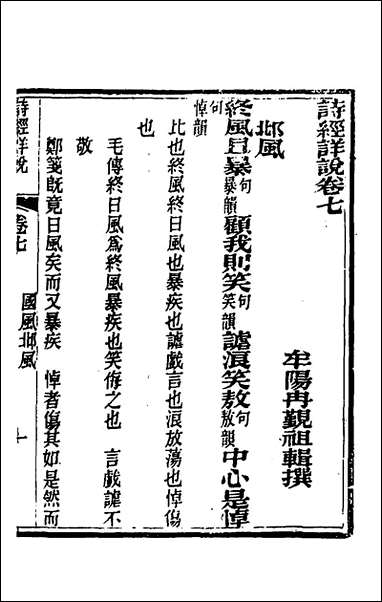 詩經詳說卷七
牟陽冉覲祖輯撰
邶風
終風且暴句暴韻顧我則笑句笑韻謔浪笑敖句敖韻中心是悼
句悼韻
比也終風終日風也暴疾也謔戲言也浪放蕩也悼傷
也
毛傳終日風爲終風暴疾也笑侮之也 言戲謔不
敬
鄭箋旣竟日風矣而又暴疾 悼者傷其如是然而
詩經詳說
卷七
國風邶風
一